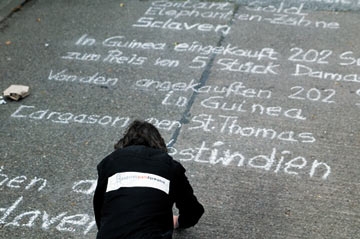 Elephanten-Zähne
Sclaven
In Guinea eingekauft 202 S
zum Preis von 5 Stück Dama
Von den angekauften 202
In Guinea
Cargasonen St. Thomas
estindien
Sclaven